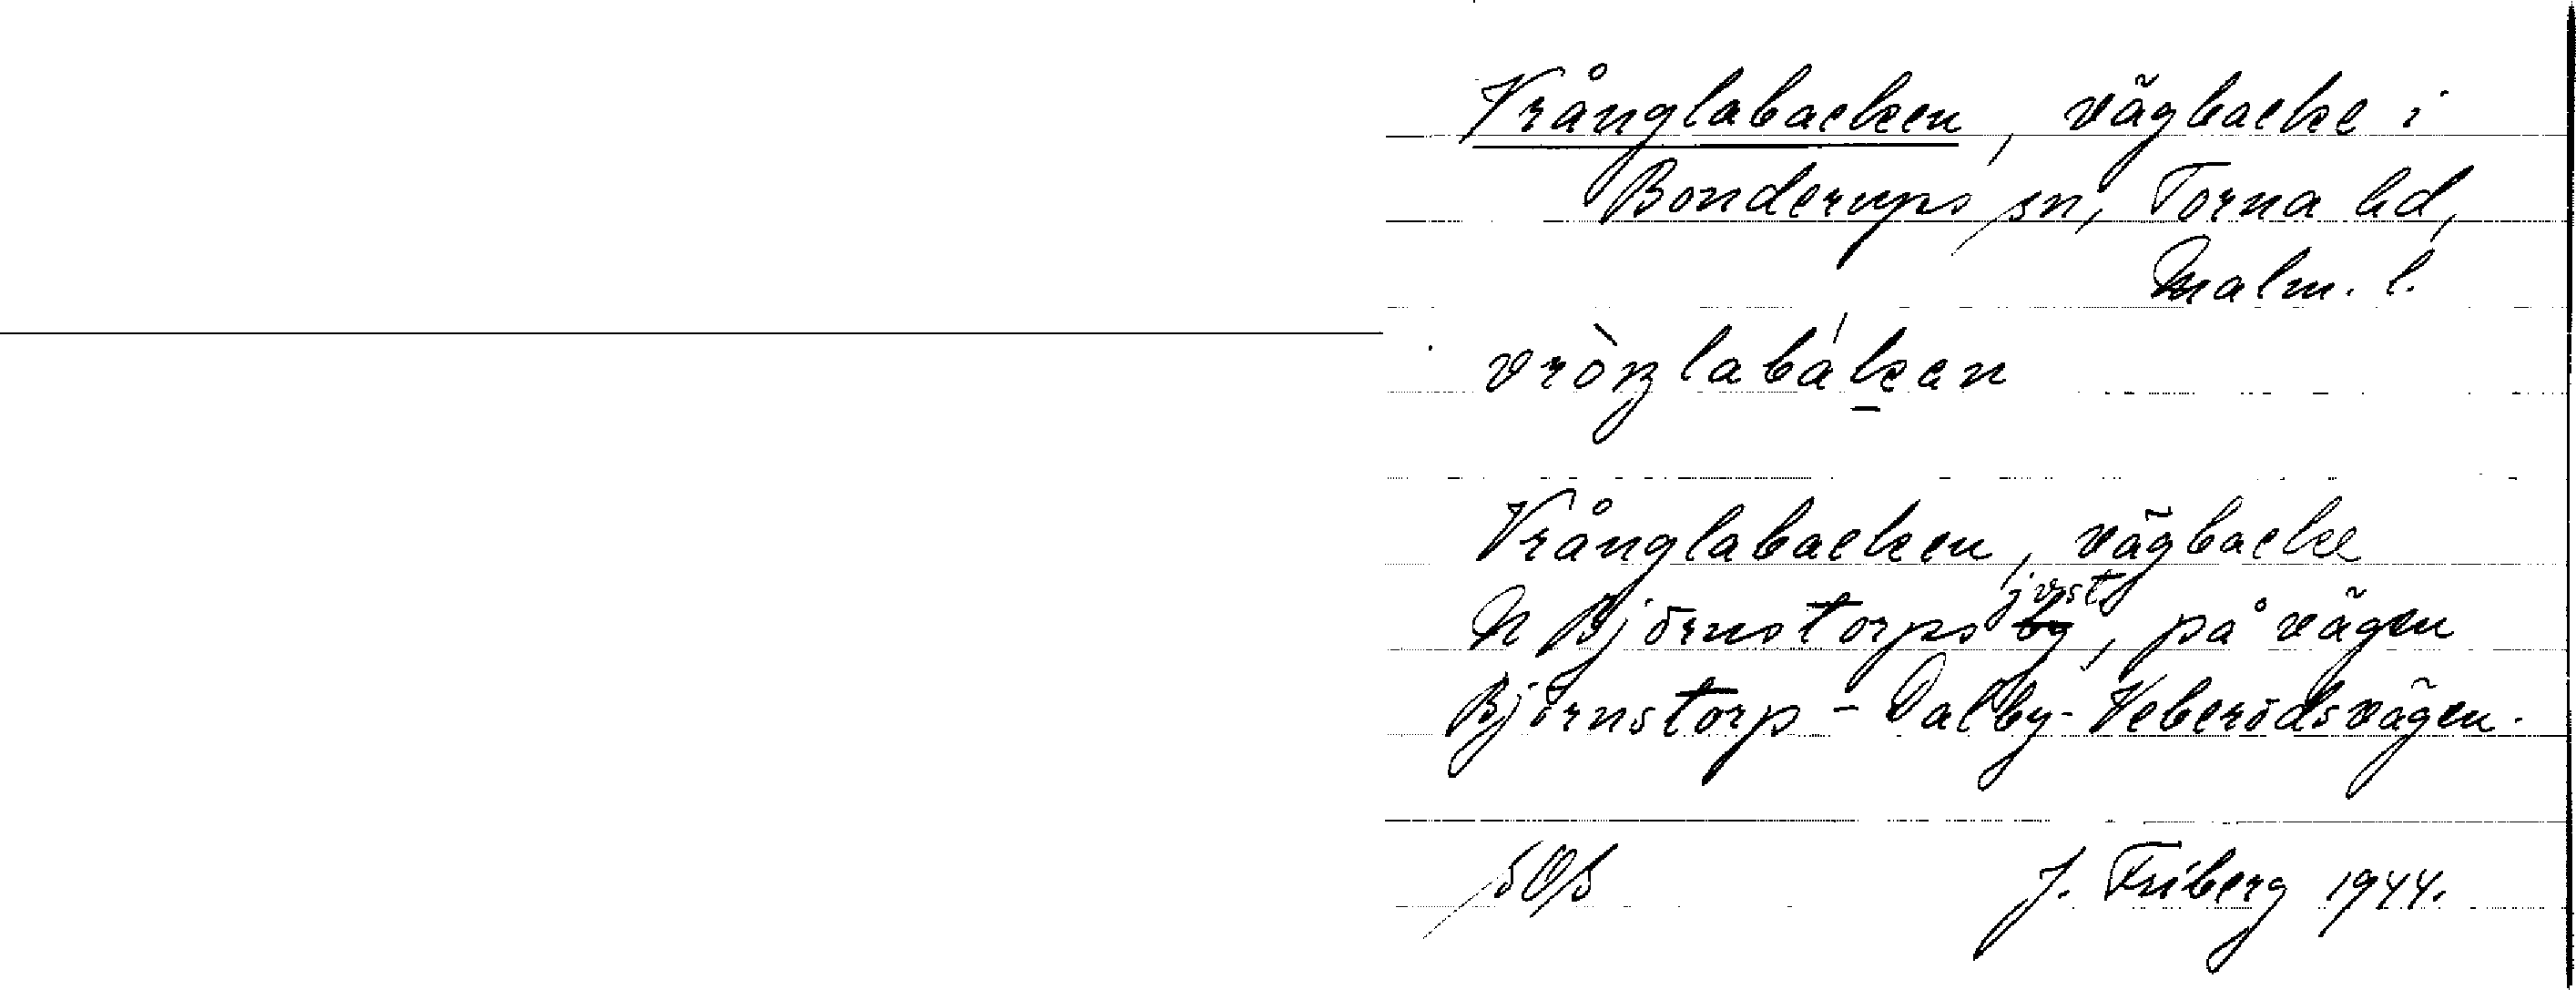 Vrånglabacken, vägbacke i
Bonderups sn, Torna hd,
Malm. l.
vròŋlabákan
Vrånglabacken, vägbacke
N Björnstorps jvst, på vägen
Björnstorp - Dalby-Veberödsvägen.
SOS J. Friberg 1944.